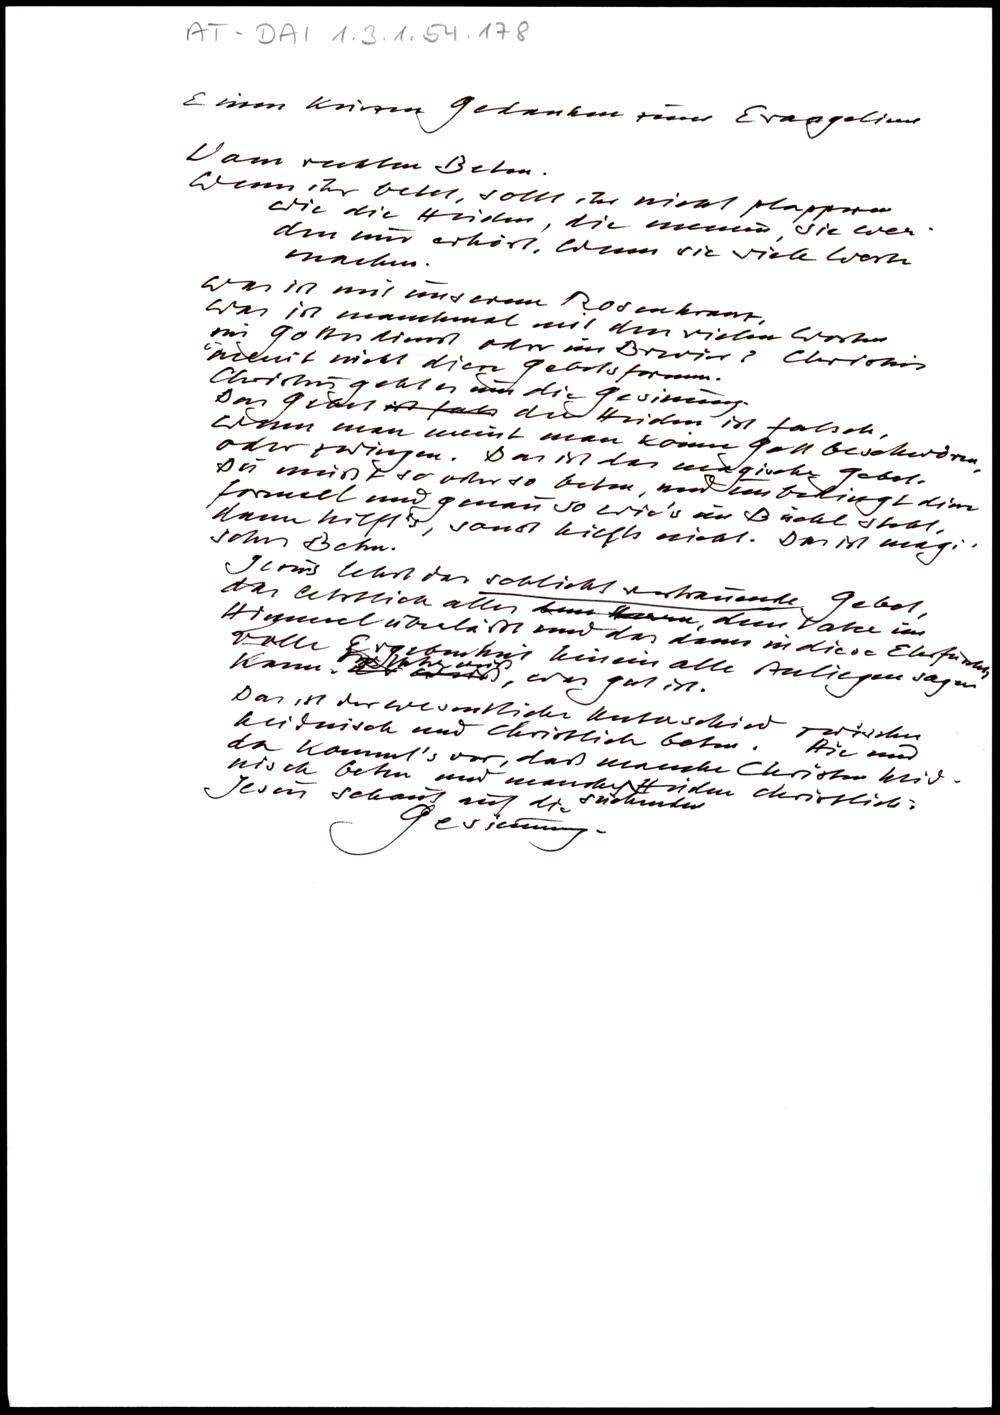 AT-DAI 1.3.1.54.178
Einen kurzen Gedanken zum Evangelium
Vom rechten Beten.
Wenn ihr betet, sollt ihr nicht plappern
wie die Heiden, die meinen, sie wer-
den nur erhört, wenn sie viele Worte
machen.
Was ist mit unserem Rosenkranz,
Was ist manchmal mit den vielen Worten
im Gottesdienst oder im Brevier? Christus
meint nicht diese Gebetsformen.
Christus geht es um die Gesinnung.
Das Gebet ist fals der Heiden ist falsch,
wenn man meint man könne Gott beschwören,
oder zwingen. Das ist das magische Gebet.
Du mußt so oder so beten, und unbedingt diese
Formel und genau so wie's im Büchl steht,
dann hilft's, sonst hilfts nicht. Das ist magi-
sches Beten.
Jesus lehrt das schlicht vertrauende Gebet,
das letztlich alles dem Vater im
Himmel überläßt und das dann in diese Ehrfurchts
volle Ergebenheit hinein alle Anliegen sagen
kann. , was gut ist.
Das ist der wesentliche Unterschied zwischen
heidnisch und christlich beten. Hie und
da kommt's vor, daß manche Christen heid-
nisch beten und manche Heiden christlich:
Jesus schaut auf die suchende
Gesinnung.